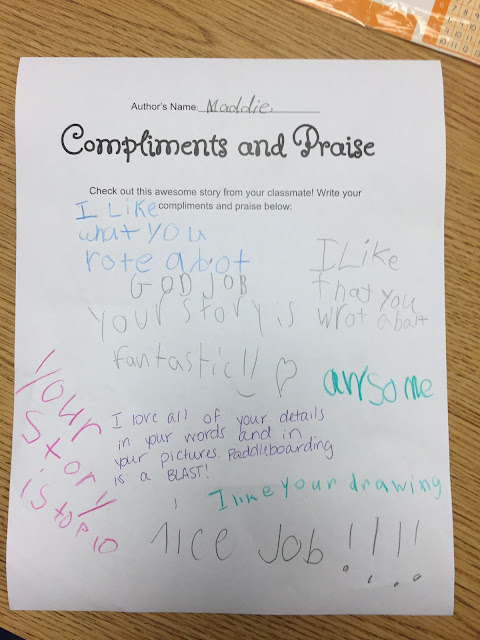 Author's Name: Maddie
Compliments and Praise
Check out this awesome story from your classmate! Write your
compliments and praise below:
I LiKe
what you
rote abot
GOD JOB
I Like
that you
wrot abalt
your story is
fantastic!!
arsome
Your
Story
is top
10
I love all of your details
in your words and in
your pictures. Paddleboarding
is a BLAST!
I like your drawing
Nice Job !!!!